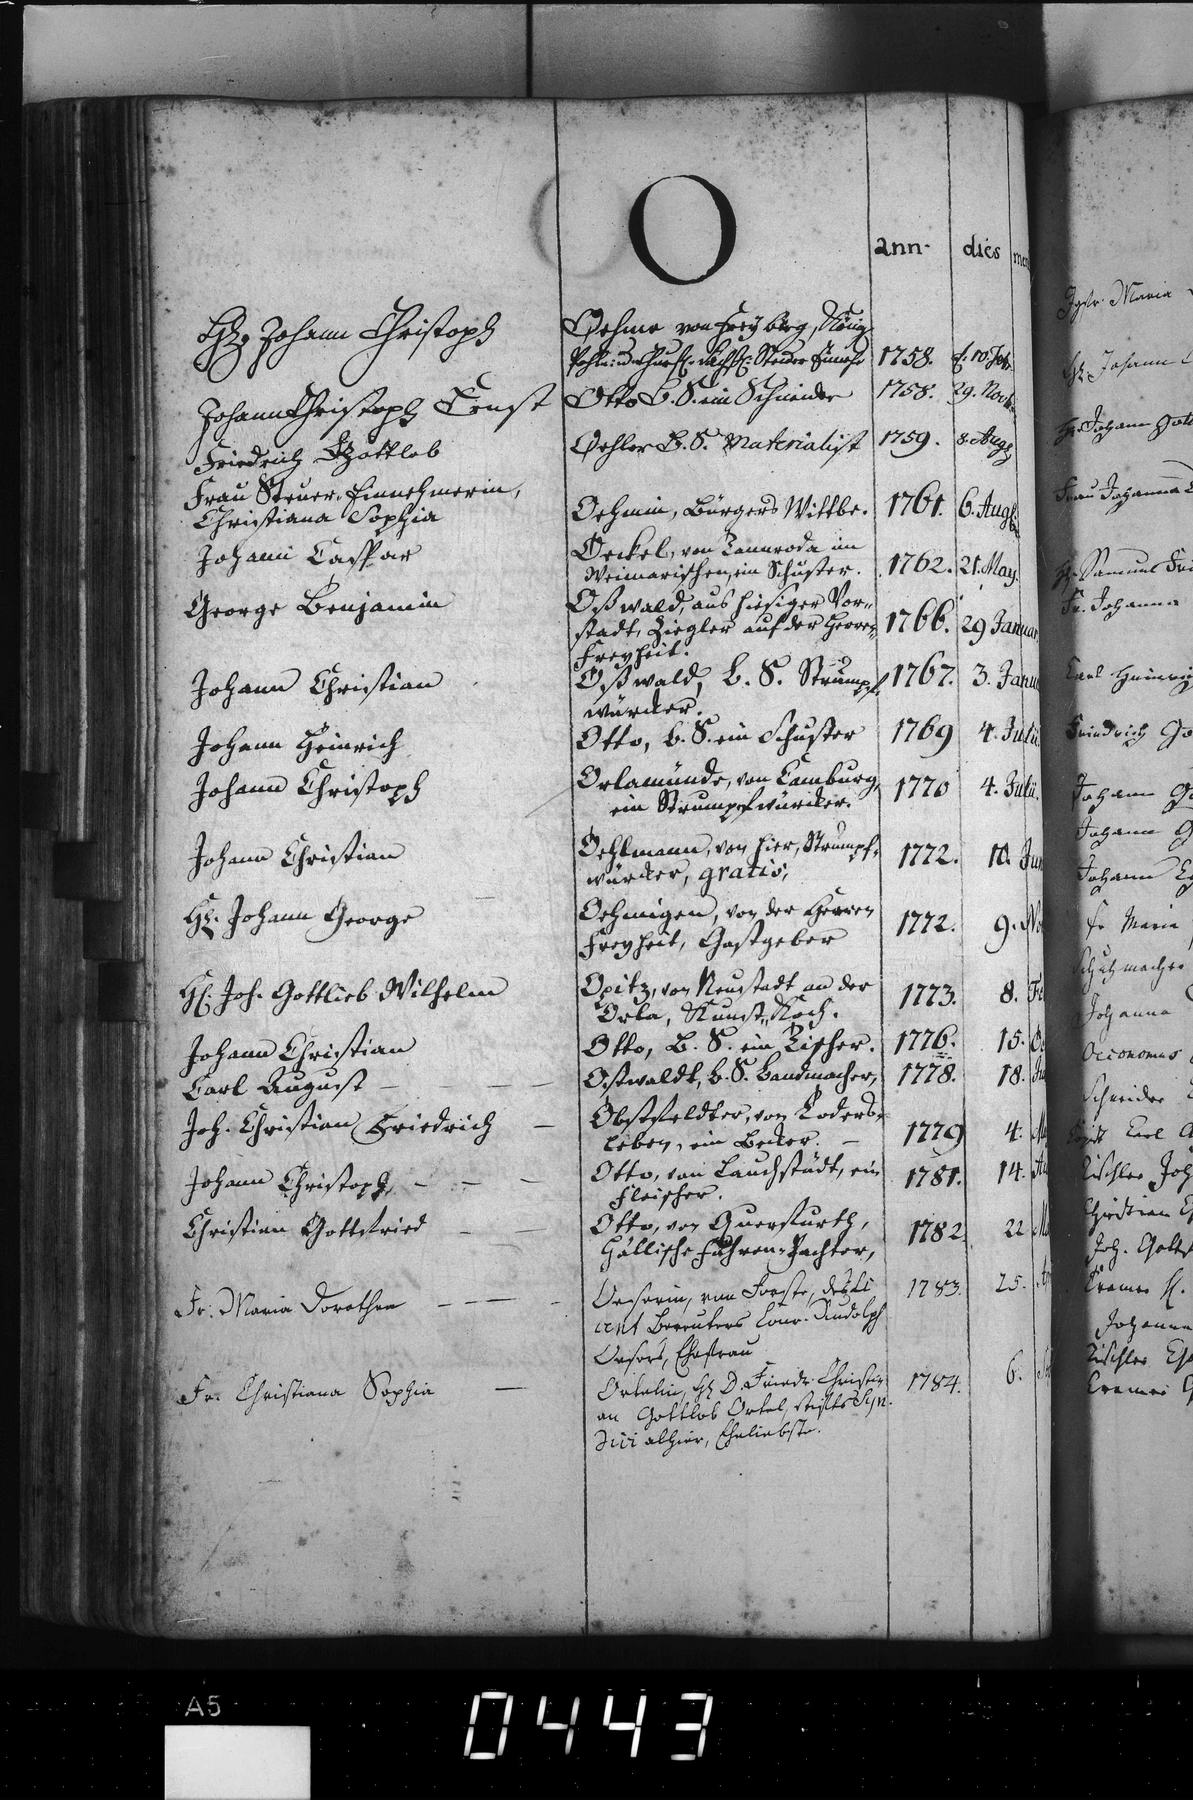 O
ann. dies
Hr. Johann Christoph Oehme von Freyberg, König
Pohln. u. Churf. Sächß. Steuer Einnehr 1758. d. 10. Febr.
Johann Christoph Ernst Otto B. S. ein Schneider 1758. 29. Novbr.
Friedrich Gottlob Oehler B. S. Materialist 1759. 8. Aug.
Frau Steuer-Einnehmerin,
Christiana Sophia Oehmin, Bürgers Wittbe. 1761. 6. Aug.
Johann Caspar Oeckel, von Tannroda im
Weimarischen, ein Schuster. 1762. 21. May.
George Benjamin Oßwald, aus hiesiger Vor-
stadt, Ziegler auf der Herren- 1766. 29 Januar.
Freyheit.
Johann Christian Oßwald, B. S. Strumpf- 1767. 3. Janu
würcker.
Johann Heinrich Otto, B. S. ein Schuster 1769 4. Julii.
Johann Christoph Orlamünde, von Camburg, 1770 4. Julii.
ein Strumpfwürcker.
Johann Christian Oehlmann, von hier, Strumpf- 1772. 10. Jun
würcker, gratis,
Hr. Johann George Oehmigen, von der Herren 1772. 9. No
Freyheit, Gastgeber
Hr. Joh. Gottlieb Wilhelm Opitz, von Neustadt an der 1773. 8. Fe
Orla, Kunst-Koch.
Johann Christian Otto, B. S. ein Tischer. 1776. 15.
Carl August — — — — Ostwaldt, B. S. Bandmacher, 1778. 18.
Joh. Christian Friedrich — Obstfeldter, von Loders-
leben, ein Becker. — 1779 4.
Johann Christoph, — — — Otto, von Lauchstädt, ein 1781. 14.
Fleischer.
Christian Gottfried — — Otto, von Querfurth, 1782. 22
Hällische Fuhren-Pachter,
Fr. Maria Dorothea — — — — Oeserin, von Forste, 1783. 25.
Bereuters Conr. Rudolph
Oesers, Ehefrau
Fr. Christiana Sophia — Ortelin, Hr. D. Friedr. Christi- 1784. 6.
an Gottlob Ortel, Stiffts Syn-
dici alhier, Eheliebste.
Jgfr. Maria
Hr. Johann
Hr. Johann Gott
Frau Johanna
Hr. Samuel Fri
Fr. Johanna
Carl Heinrich
Friedrich Go
Johann
Johann
Johann
Fr. Maria
Schuhmacher
Johanna
Oeconomus
Schneider
Carl
Tischler Joh
Christian
Joh. Gottf
Cramer
Johanna
Tischler
Cramer
A5
0443